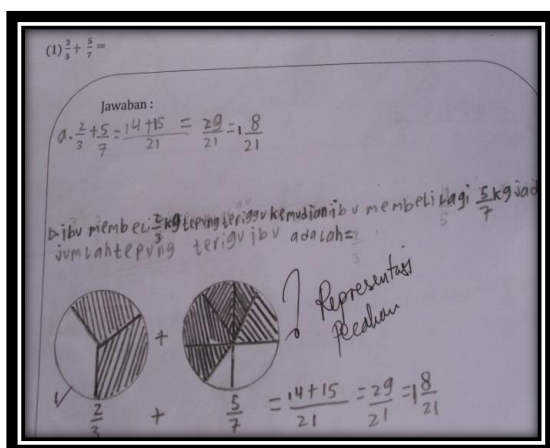 (1) 2/3 + 5/7 =
Jawaban :
a. 2/3 + 5/7 = 14+15/21 = 29/21 = 1 8/21
b. ibu membeli 2/3 kg tepung teriggu kemudian ibu membeli lagi 5/7 kg jad
jumlah tepung terigu ibu adalah =
+
! Representasi
pecahan
2/3 + 5/7 = 14+15/21 = 29/21 = 1 8/21